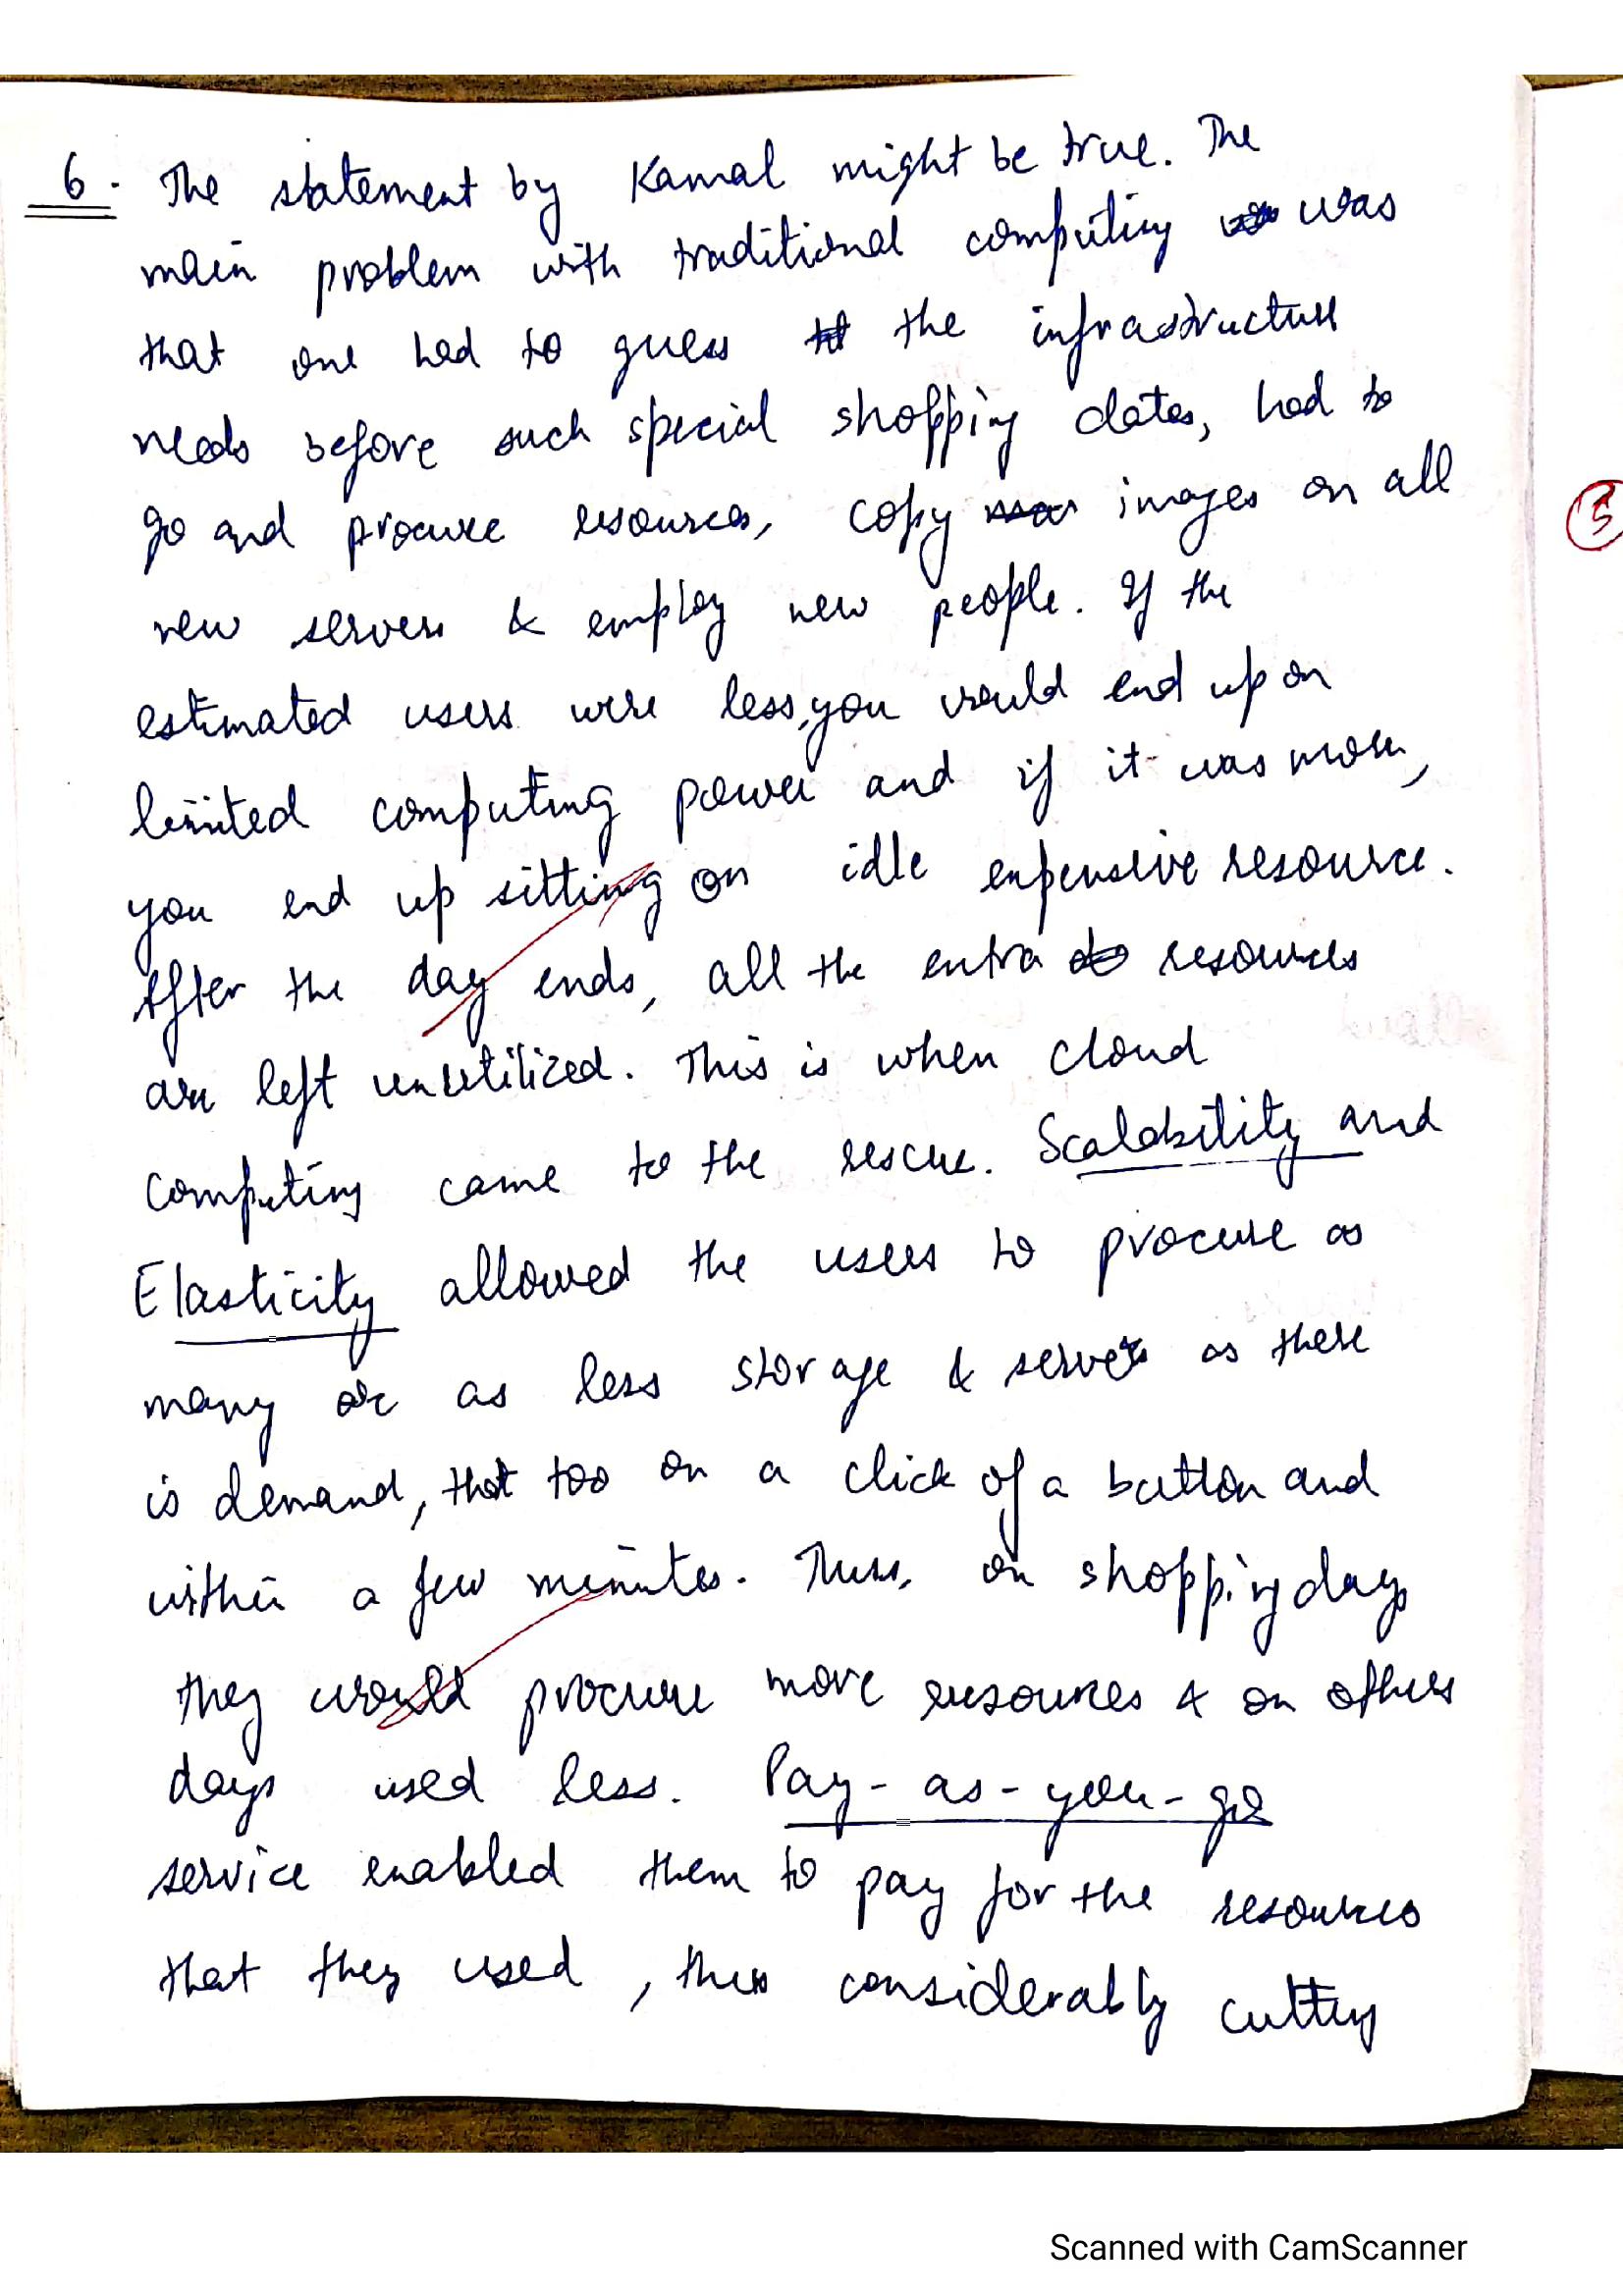 6. The statement by Kamal might be true. The
main problem with traditional computing was
that one had to guess the infrastructure
needs before such special shopping dates, had to
go and procure resources, copy images on all
new servers & employ new people. If the
estimated users were less, you would end up on
limited computing power and if it was more,
you end up sitting on idle expensive resource.
After the day ends, all the extra resources
are left unutilized. This is when cloud
computing came to the rescue. Scalability and
Elasticity allowed the users to procure as
many or as less storage & servers as there
is demand, that too on a click of a button and
within a few minutes. Thus, on shopping days
they would procure more resources & on others
days used less. Pay-as-you-go
service enabled them to pay for the resources
that they used, thus considerably cutting
5
Scanned with CamScanner